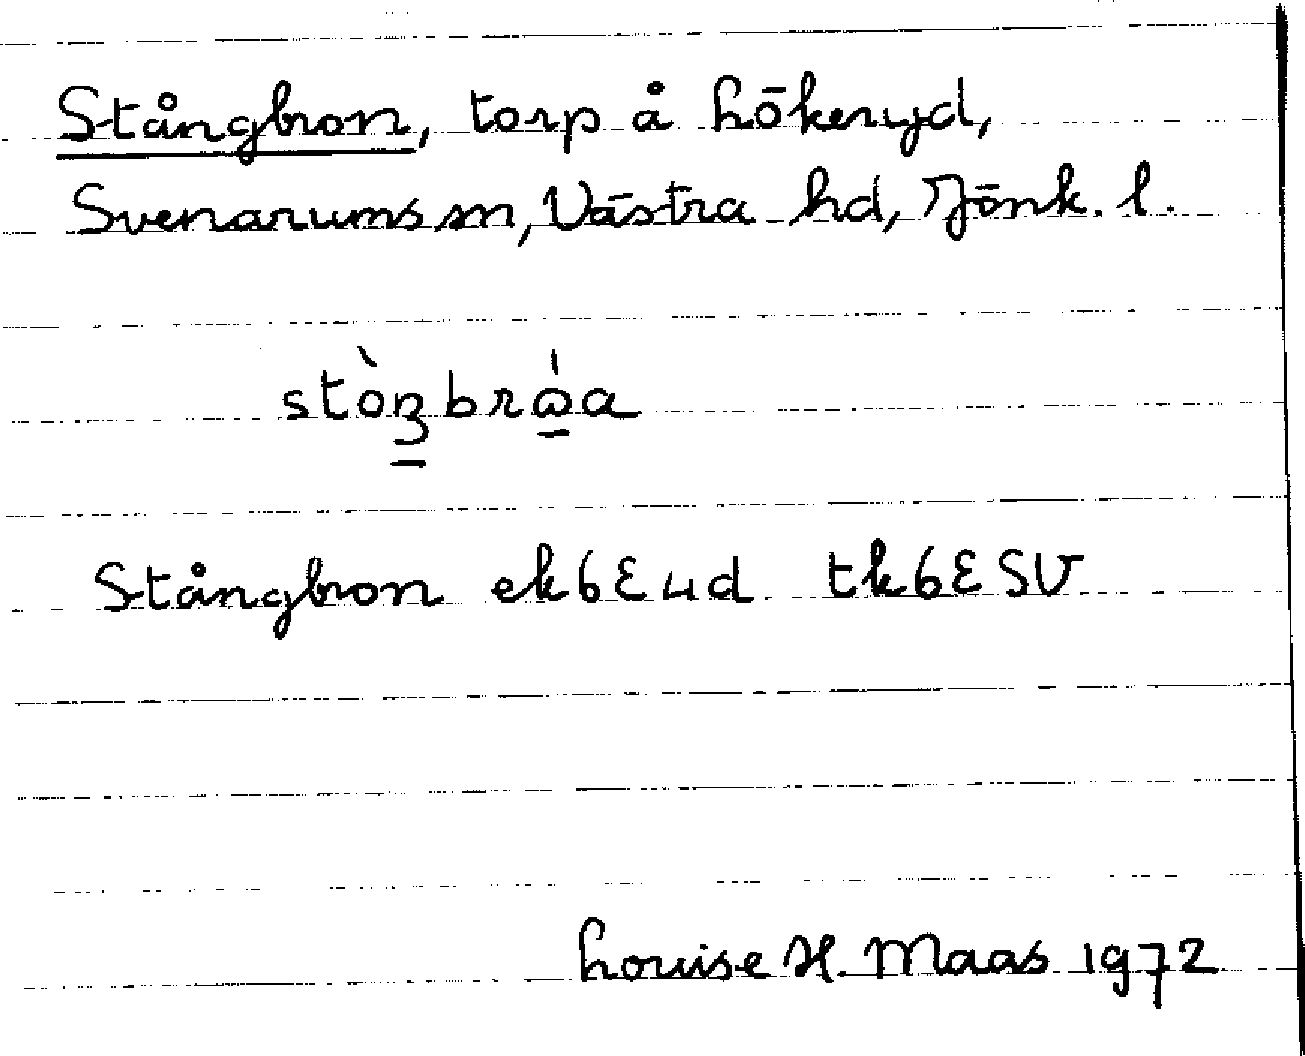 Stångbron, torp å Lökeryd,
Svenarums sn, Västra hd, Jönk. l.
Stångbron ek6Eud tk6ESV
Louise H. Maas 1972